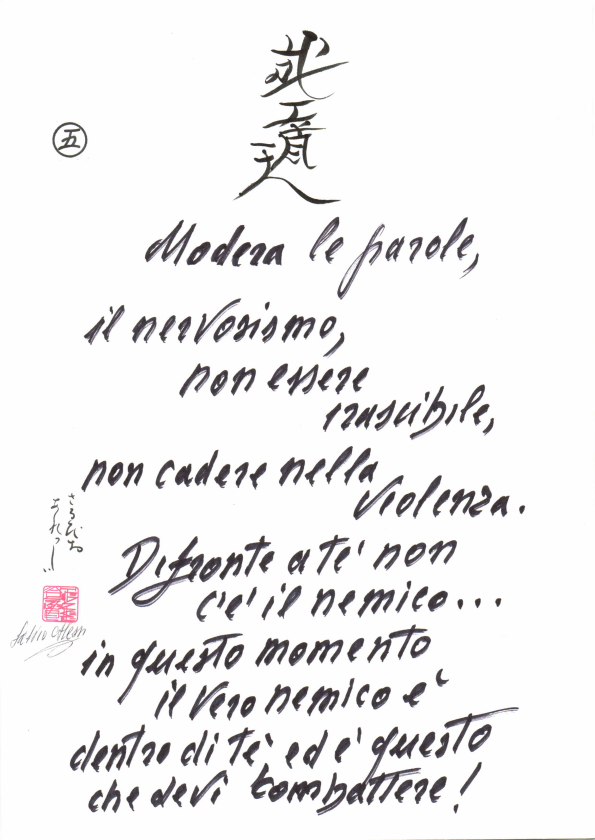 五
Modera le parole,
il nervosismo,
non essere
irascibile,
non cadere nella
violenza.
Difronte a te' non
c'e' il nemico...
in questo momento
il vero nemico e'
dentro di te' ed e' questo
che devi combattere!